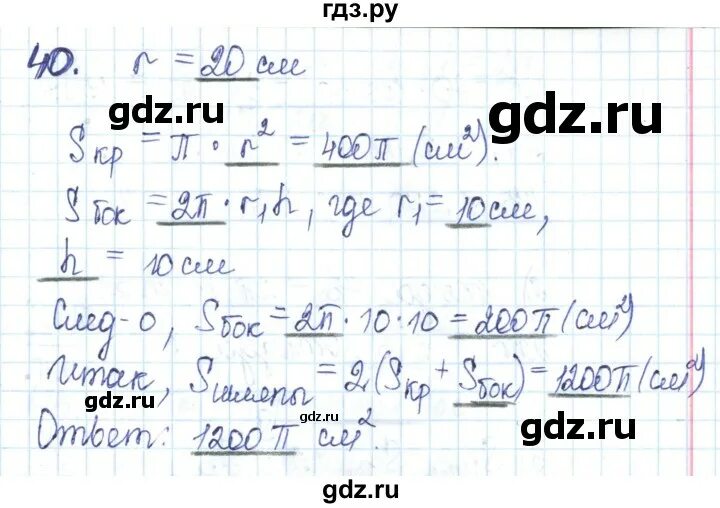 гдз.ру
40. r = 20 см
gdz.ru
gdz.ru
Sкр = π · r² = 400π (см²).
Sбок = 2π · r₁h, где r₁ = 10 см,
h = 10 см
gdz.ru
След-о, Sбок = 2π · 10 · 10 = 200π (см²)
Итак, Sшляпы = 2(Sкр + Sбок) = 1200π (см²)
gdz.ru
gdz.ru
Ответ: 1200π см².
gdz.ru
gdz.ru